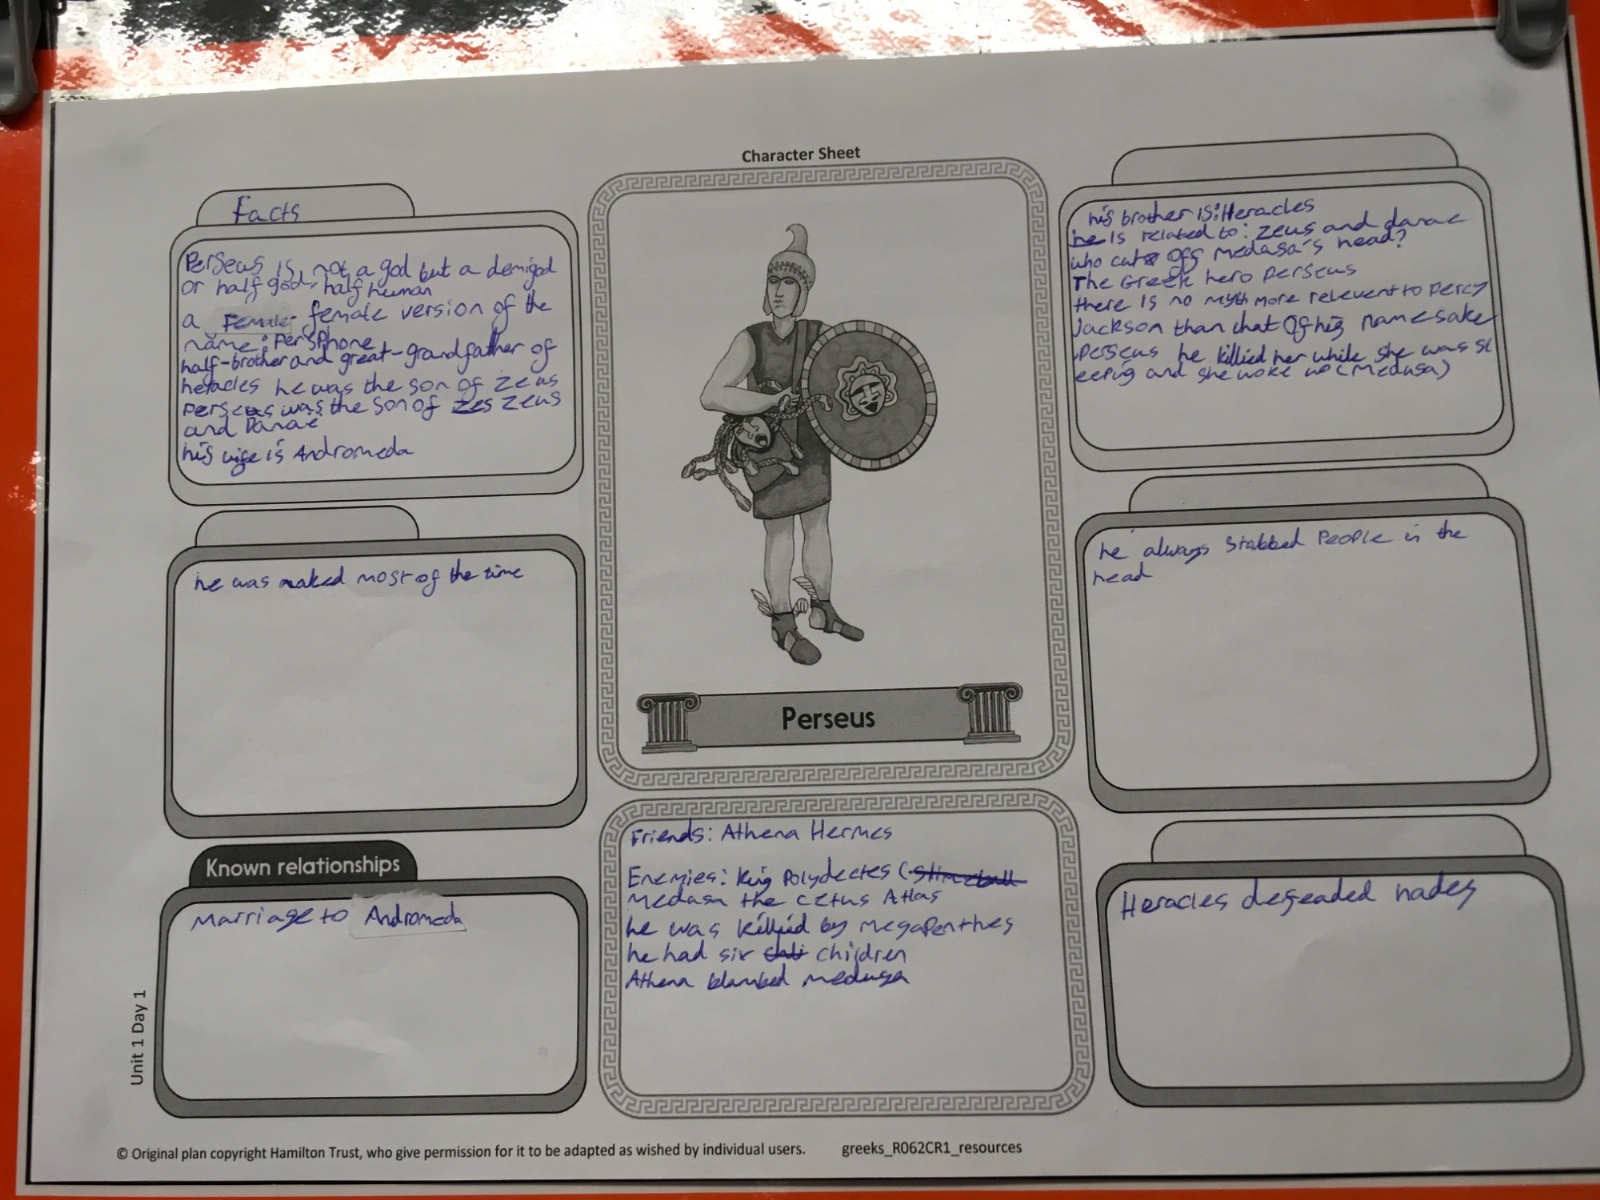 Character Sheet
Facts
Perseus is not a god but a demigod
or half god, half human
a Female female version of the
name: Persphone
half-brother and great-grandfather of
heracles he was the son of zeus
perseus was the son of zes zeus
and Danaë
his wife is Andromeda
he was naked most of the time
Known relationships
Marriage to Andromeda
Perseus
Friends: Athena Hermes
Enemies: King Polydectes (slimeball
Medasa the cetus Atlas
he was killied by Megapenthes
he had sir children
Athena blambed medusa
his brother is: Heracles
he is related to: zeus and danae
who cuts off medasa's head?
The Greek hero perseus
there is no myth more relevent to percy
Jackson than that Of his namesake
perseus he killied her while she was sl
eeping and she woke up (Medusa)
he always stabbed People in the
head
Heracles defeaded hades
Unit 1 Day 1
© Original plan copyright Hamilton Trust, who give permission for it to be adapted as wished by individual users. greeks_R062CR1_resources